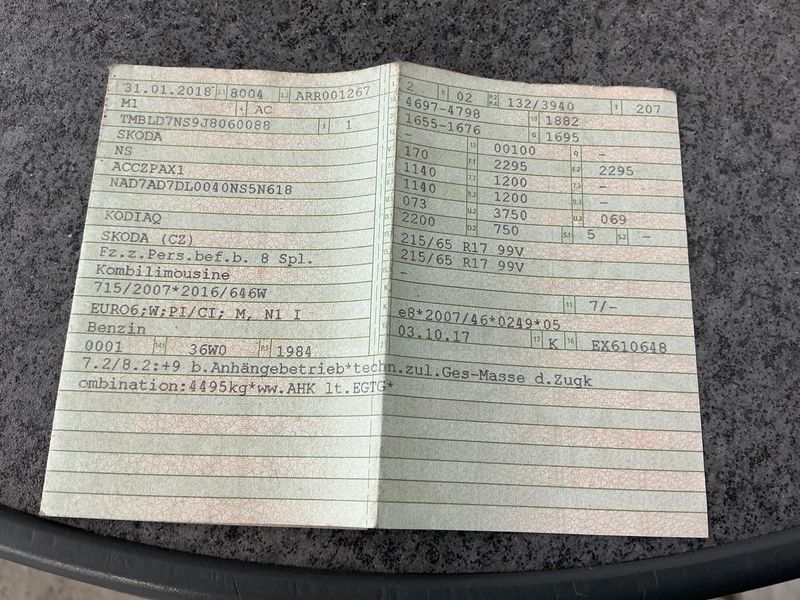 31.01.2018 2.1 8004 2.2 ARR001267
M1 4 AC
TMBLD7NS9J8060088 3 1
SKODA
NS
ACCZPAX1
NAD7AD7DL0040NS5N618
KODIAQ
SKODA (CZ)
Fz.z.Pers.bef.b. 8 Spl.
Kombilimousine
715/2007*2016/646W
EURO6;W;PI/CI; M, N1 I
Benzin
0001 14.1 36W0 P.1 1984
2 9 02 P.2 P.4 132/3940 T 207
4697-4798 18 1882
1655-1676 G 1695
- 13 00100 Q -
170 F.1 2295 F.2 2295
1140 7.2 1200 7.3 -
1140 8.2 1200 8.3 -
073 U.2 3750 U.3 069
2200 O.2 750 S.1 5 S.2 -
215/65 R17 99V
215/65 R17 99V
-
11 7/-
e8*2007/46*0249*05
03.10.17 17 K 16 EX610648
7.2/8.2:+9 b.Anhängebetrieb*techn.zul.Ges-Masse d.Zugk
ombination:4495kg*ww.AHK lt.EGTG*